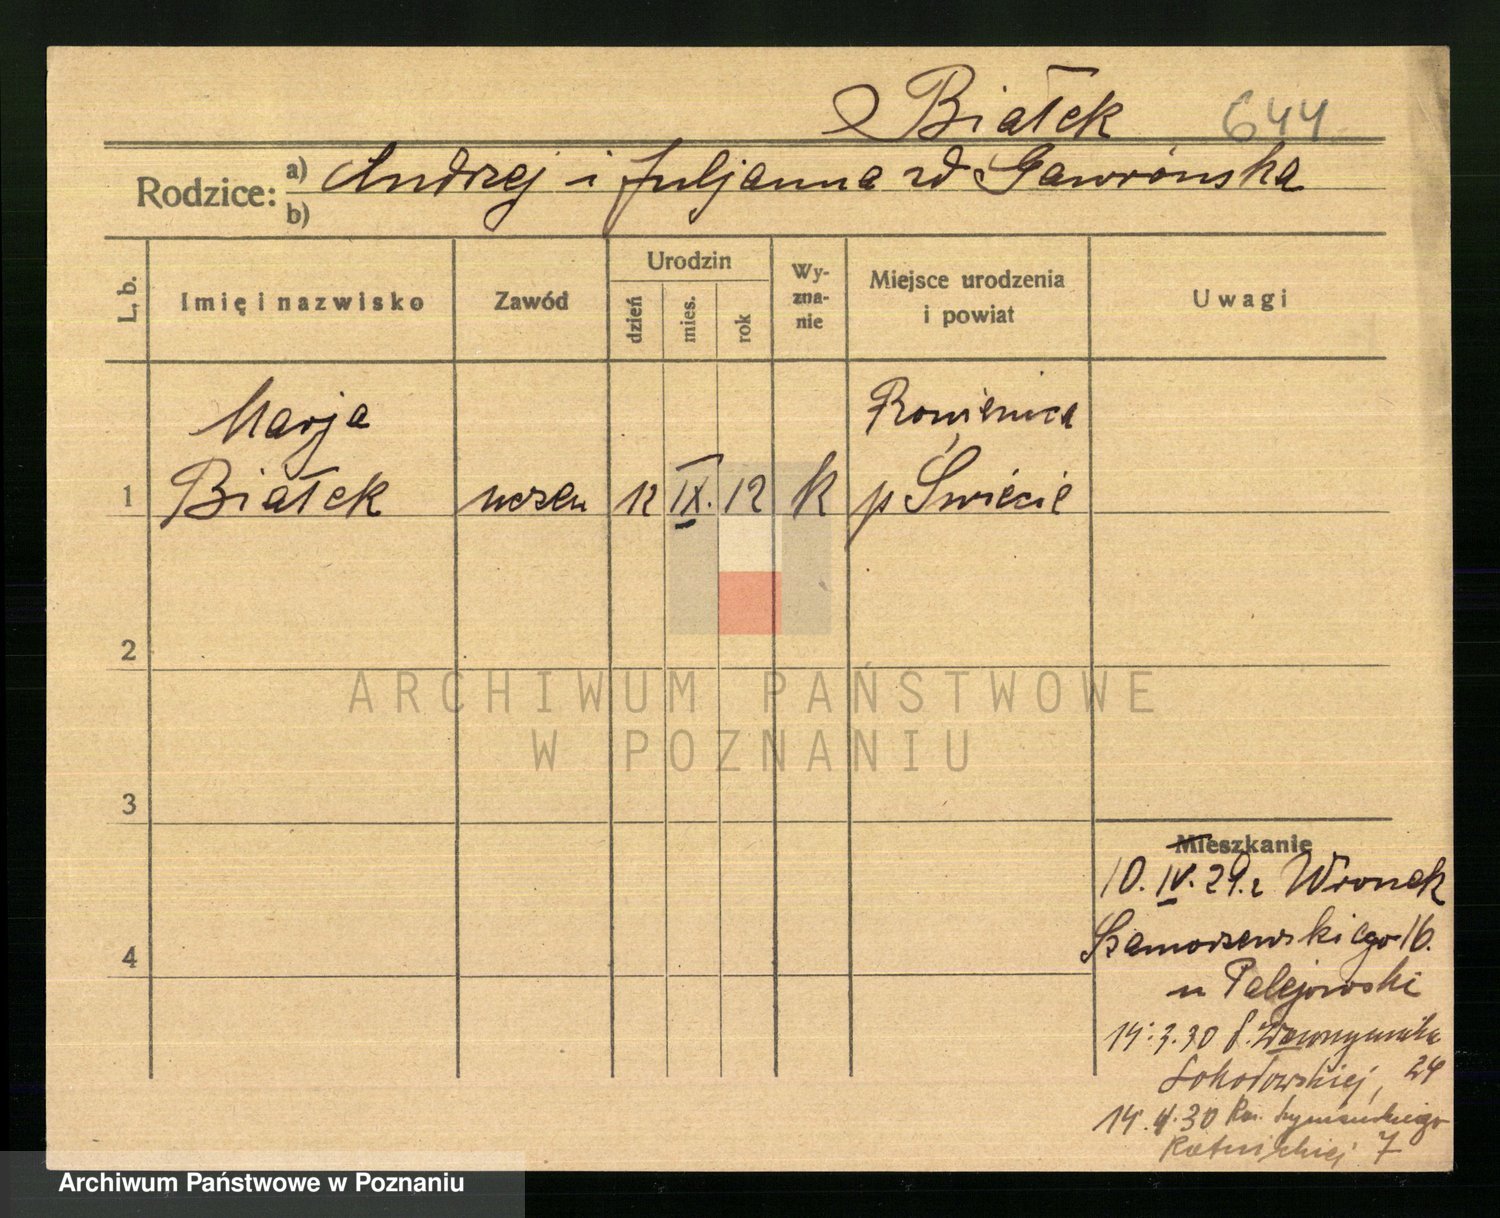 Białek 644
Rodzice: a) Andrzej i Juljanna zd Gawrońska
b)
L. b.
Imię i nazwisko
Zawód
Urodzin
dzień
mies.
rok
Wy-
zna-
nie
Miejsce urodzenia
i powiat
Uwagi
Marja
1 Białek uczen 12 IX. 12 k
p Świecie
2
3
4
Mieszkanie
10. IV. 29. r Wronek
Szamarzewskiego 16.
u Palejowski
14.3.30 f. Wawrzyniaka
24
14.4.30 Szymańskiego
7
ARCHIWUM PAŃSTWOWE
W POZNANIU
Archiwum Państwowe w Poznaniu